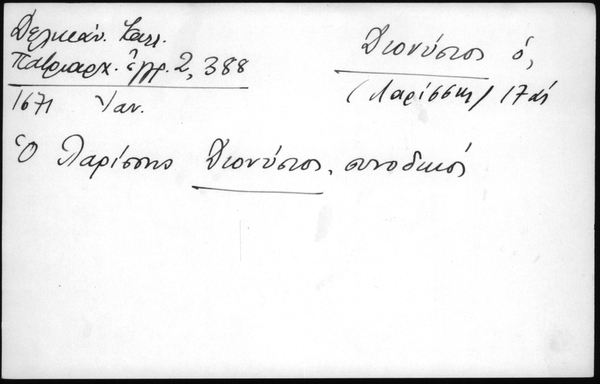 Δελικάν. Καλλ.
Πατριαρχ. ἔγγρ. 2, 388
1671 Ἰαν.
Διονύσιος ὁ,
(Λαρίσσης) 17ος
Ὁ Λαρίσσης Διονύσιος, συνοδικός